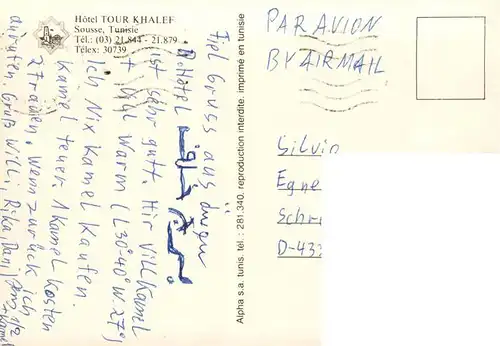 Hôtel TOUR KHALEF
Sousse, Tunisie
Tél.: (03) 21.844 - 21.879
Télex: 30739
Fiel Gruss aus
D. Hotel
ist sähr gutt. Hir Vill Kamel
Warm (L 30°-40° W. 27°)
Ich Nix Kamel Kaufen.
Kamel teuer. 1 Kamel Kosten
2 Frauen. Wenn zurück ich
Gruß Willi, Rika, Dani,
Alpha s.a. tunis. tél.: 281.340. reproduction interdite. imprimé en tunisie
PAR AVION
BY AIRMAIL
Silvi
Egne
Schr
D-43